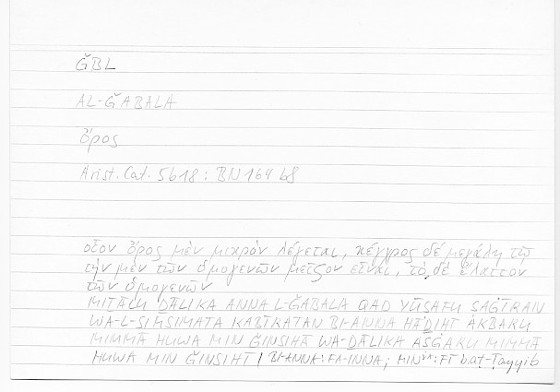 ǦBL
AL-ǦABALA
ὄρος
Arist. Cat. 5b18 : BN 164 b8
οἷον ὄρος μὲν μικρὸν λέγεται, κέγχρος δὲ μεγάλη τῷ
τὴν μὲν τῶν ὁμογενῶν μεῖζον εἶναι, τὸ δὲ ἔλαττον
τῶν ὁμογενῶν
MITĀLU DĀLIKA ANNA L-ǦABALA QAD YŪṢAFU ṢAĠĪRAN
WA-L-SIMSIMATA KABĪRATAN BI-ANNA HĀḎIHĪ AKBARU
MIMMĀ HUWA MIN ǦINSIHĀ WA-ḎĀLIKA AṢĠARU MIMMĀ
HUWA MIN ǦINSIHĪ / BI-ANNA: FA-INNA; MIN: FĪ bat-Tayyib